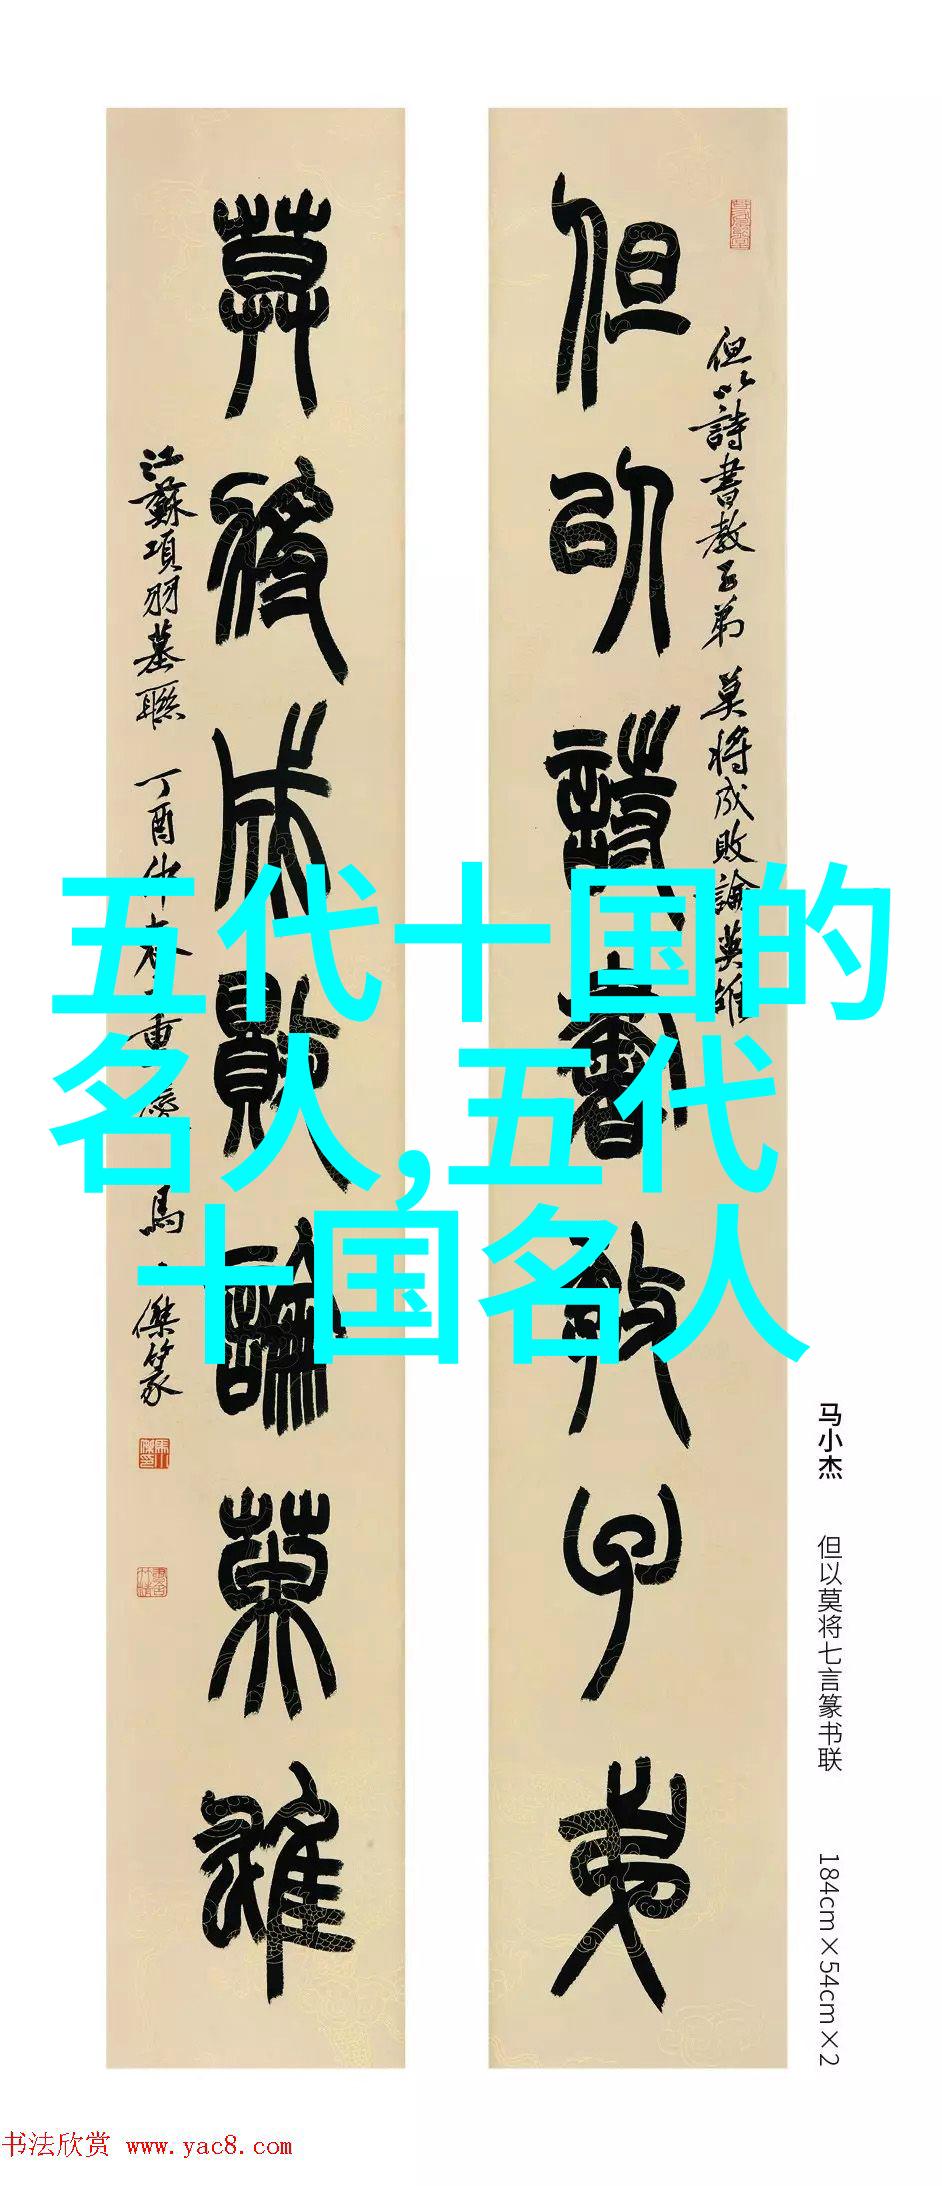 但以詩書教子弟
但以詩書教子弟 莫將成敗論英雄
莫將成敗論英雄
江蘇項羽墓聯 丁酉仲春 重慶 馬小傑篆
五代十国的
名人,五代
十国名人
马小杰 但以莫将七言篆书联 184cm×54cm×2
书法欣赏 www.yac8.com